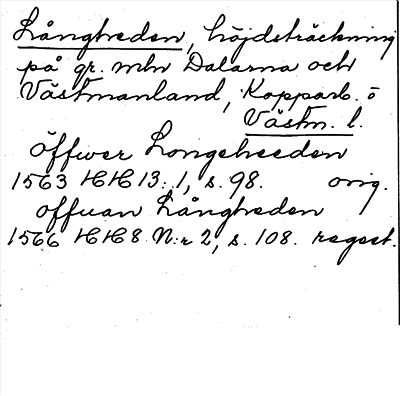 Långheden, höjdsträckning
på gr. mln Dalarna och
Västmanland, Kopparb. o
Västm. l.
öffwer Longeheeden
1563 HH 13:1, s. 98. orig.
offuan Långheden
1566 HH 8 N:r 2, s. 108. regest.